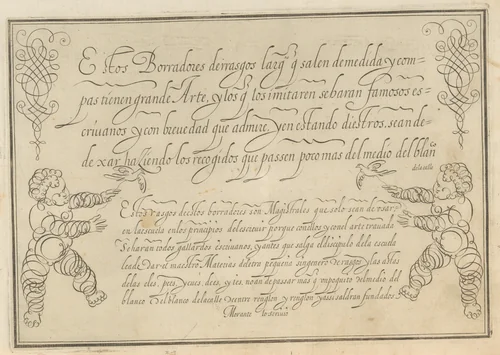 Estos Borradores de rrasgos largos q salen de medida y com-
pas tienen grande Arte, y los q los imitaren se haran famosos es-
criuanos y con breuedad que admire, y en estando diestros, se an de
dexar haziendo los recogidos que passen poco mas del medio del blāco
de la rilla
Estos rasgos destos borradores son Magistrales que solo se an de vsar
en la escuela en los principios del escreuir porque con ellos y con el arte trauada
Se haran todos gallardos escriuanos, y antes que salga el discipulo de la escuela
le a de dar el maestro Materias de letra pequeña con genero de rasgos y las astas
de las eles, pes, y eues, des, y tes, no an de passar mas q un poquito del medio del
blanco Del blanco de la calle de entre renglon y renglon y assi saldran fundados.
Morante lo escriuio